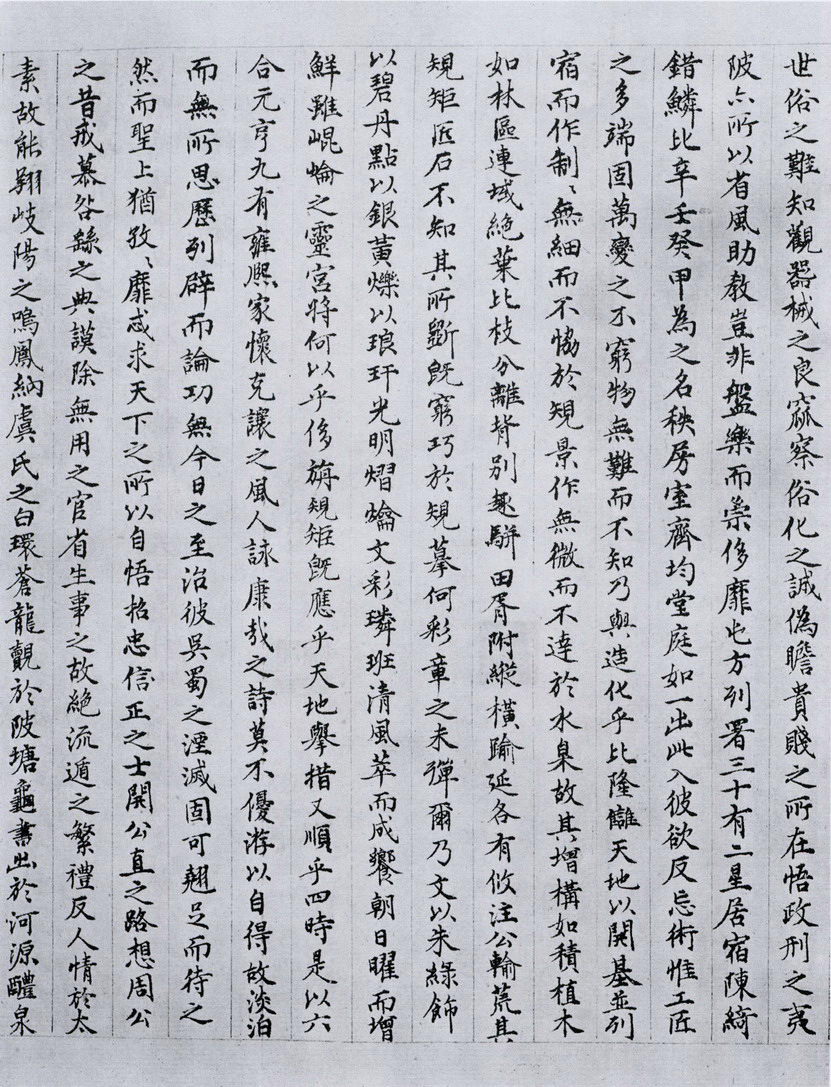 世俗之難知觀器械之良窳察俗化之誠偽瞻貴賤之所在悟政刑之夷
陂亦所以省風助教豈非盤樂而崇侈靡屯方列署三十有二星居宿陳綺
錯鱗比辛壬癸甲為之名秩房室齊均堂庭如一出此入彼欲反忘術惟工匠
之多端固萬變之不窮物無難而不知乃與造化乎比隆讎天地以開基並列
宿而作制〻無細而不協於規景作無微而不違於水臬故其增構如積植木
如林區連域絕葉比枝分離背別趣駢田胥附縱橫踰延各有攸注公輸荒其
規矩匠石不知其所斲既窮巧於規摹何彩章之未殫爾乃文以朱綠飾
以碧丹點以銀黃爍以琅玕光明熠爚文彩璘班清風萃而成響朝日曜而增
鮮雖崐崘之靈宮將何以乎侈旃規矩既應乎天地舉措又順乎四時是以六
合元亨九有雍熙家懷克讓之風人詠康哉之詩莫不優游以自得故淡泊
而無所思歷列辟而論功無今日之至治彼吳蜀之湮滅固可翹足而待之
然而聖上猶孜〻靡忒求天下之所以自悟招忠信正之士開公直之路想周公
之昔戒慕咎繇之典謨除無用之官省生事之故絕流遁之繁禮反人情於太
素故能翔岐陽之鳴鳳納虞氏之白環蒼龍覿於陂塘龜書出於河源醴泉